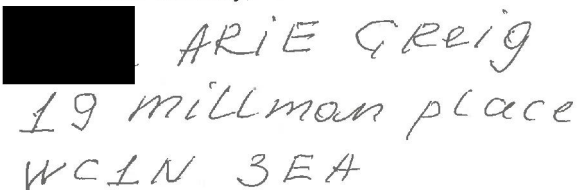 ARiE GReig
19 millman place
WC1N 3EA